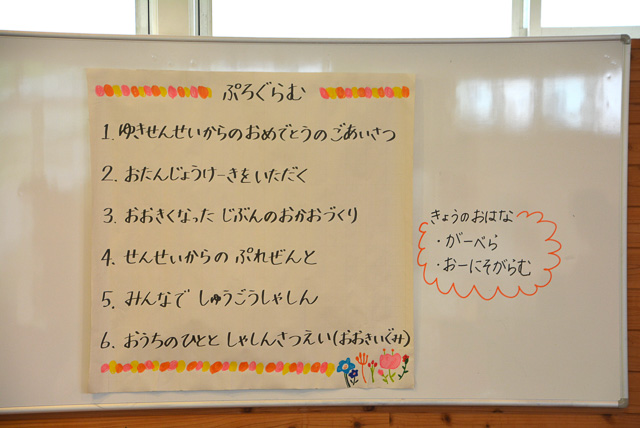 ぷろぐらむ
1. ゆきせんせいからのおめでとうのごあいさつ
2. おたんじょうけーきをいただく
3. おおきくなった じぶんのおかおづくり
4. せんせいからの ぷれぜんと
5. みんなで しゅうごうしゃしん
6. おうちのひとと しゃしんさつえい(おおきいぐみ)
きょうのおはな
・がーべら
・おーにそがらむ